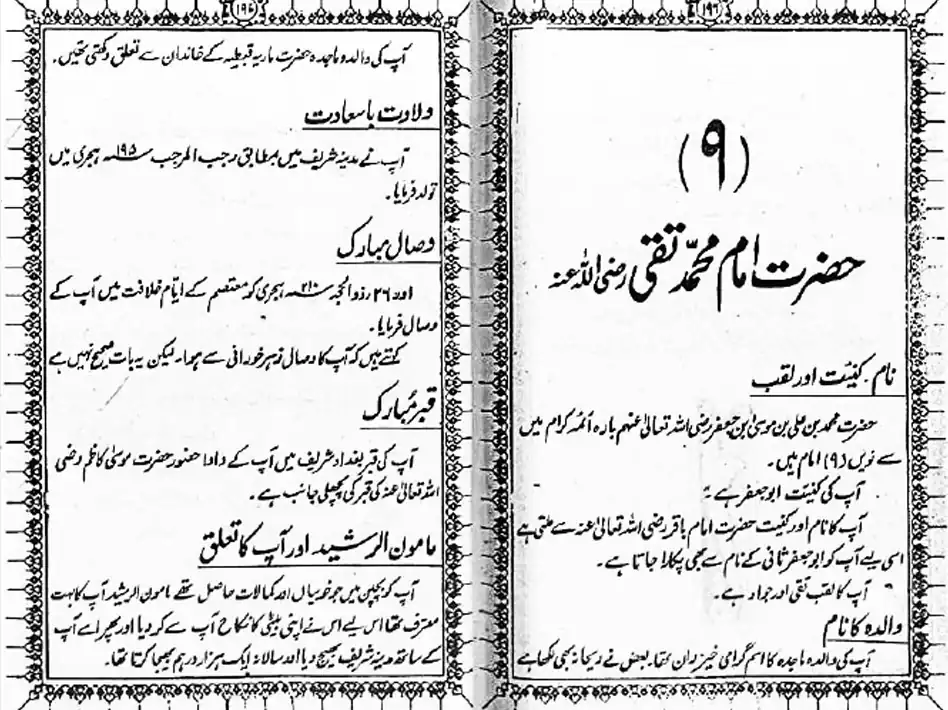 ۱۹۶
(۹)
حضرت امام محمد تقی رضی اللہ عنہ
نام ۔ کنیئت اور لقب
حضرت محمد بن علی بن موسیٰ ابن جعفر رضی اللہ تعالیٰ عنہم بارہ آئمہ کرام میں
سے نویں (۹) امام ہیں۔
آپ کی کنیئت ابو جعفر ہے ۔
آپ کا نام اور کنیت حضرت امام باقر رضی اللہ تعالیٰ عنہ سے ملتی ہے
اسی لیے آپ کو ابو جعفر ثانی کے نام سے بھی پکارا جاتا ہے ۔
آپ کا لقب تقی اور جواد ہے ۔
والدہ کا نام
آپ کی والدہ ماجدہ کا اسم گرامی خیزران تھا۔ بعض نے ریحانہ بھی لکھا ہے
آپ کی والدہ ماجدہ حضرت ماریہ قبطیہ کے خاندان سے تعلق رکھتی تھیں ۔
ولادت با سعادت
آپ نے مدینہ شریف میں بمطابق رجب المرجب ۱۹۵ ہجری میں
تولد فرمایا ۔
وصال مبارک
اور ۲۶ ذوالحجہ ۲۱۰ ہجری کو معتصم کے ایّام خلافت میں آپ کے
وصال فرمایا ۔
کہتے ہیں کہ آپ کا وصال زہر خورانی سے ہوا ۔ لیکن یہ بات صحیح نہیں ہے
قبر مُبارک
آپ کی قبر بغداد شریف میں آپ کے دادا حضور حضرت موسیٰ کاظم رضی
اللہ تعالیٰ عنہ کی قبر کی پچھلی جانب ہے ۔
مامون الرشید اور آپ کا تعلق
آپ کو بچپن میں جو خوبیاں اور کمالات حاصل تھے مامون الرشید آپ کا بہت
معترف تھا اس لیے اس نے اپنی بیٹی کا نکاح آپ سے کر دیا اور پھر اسے آپ
کے ساتھ مدینہ شریف بھیج دیا اور سالانہ ایک ہزار درہم بھیجا کرتا تھا۔